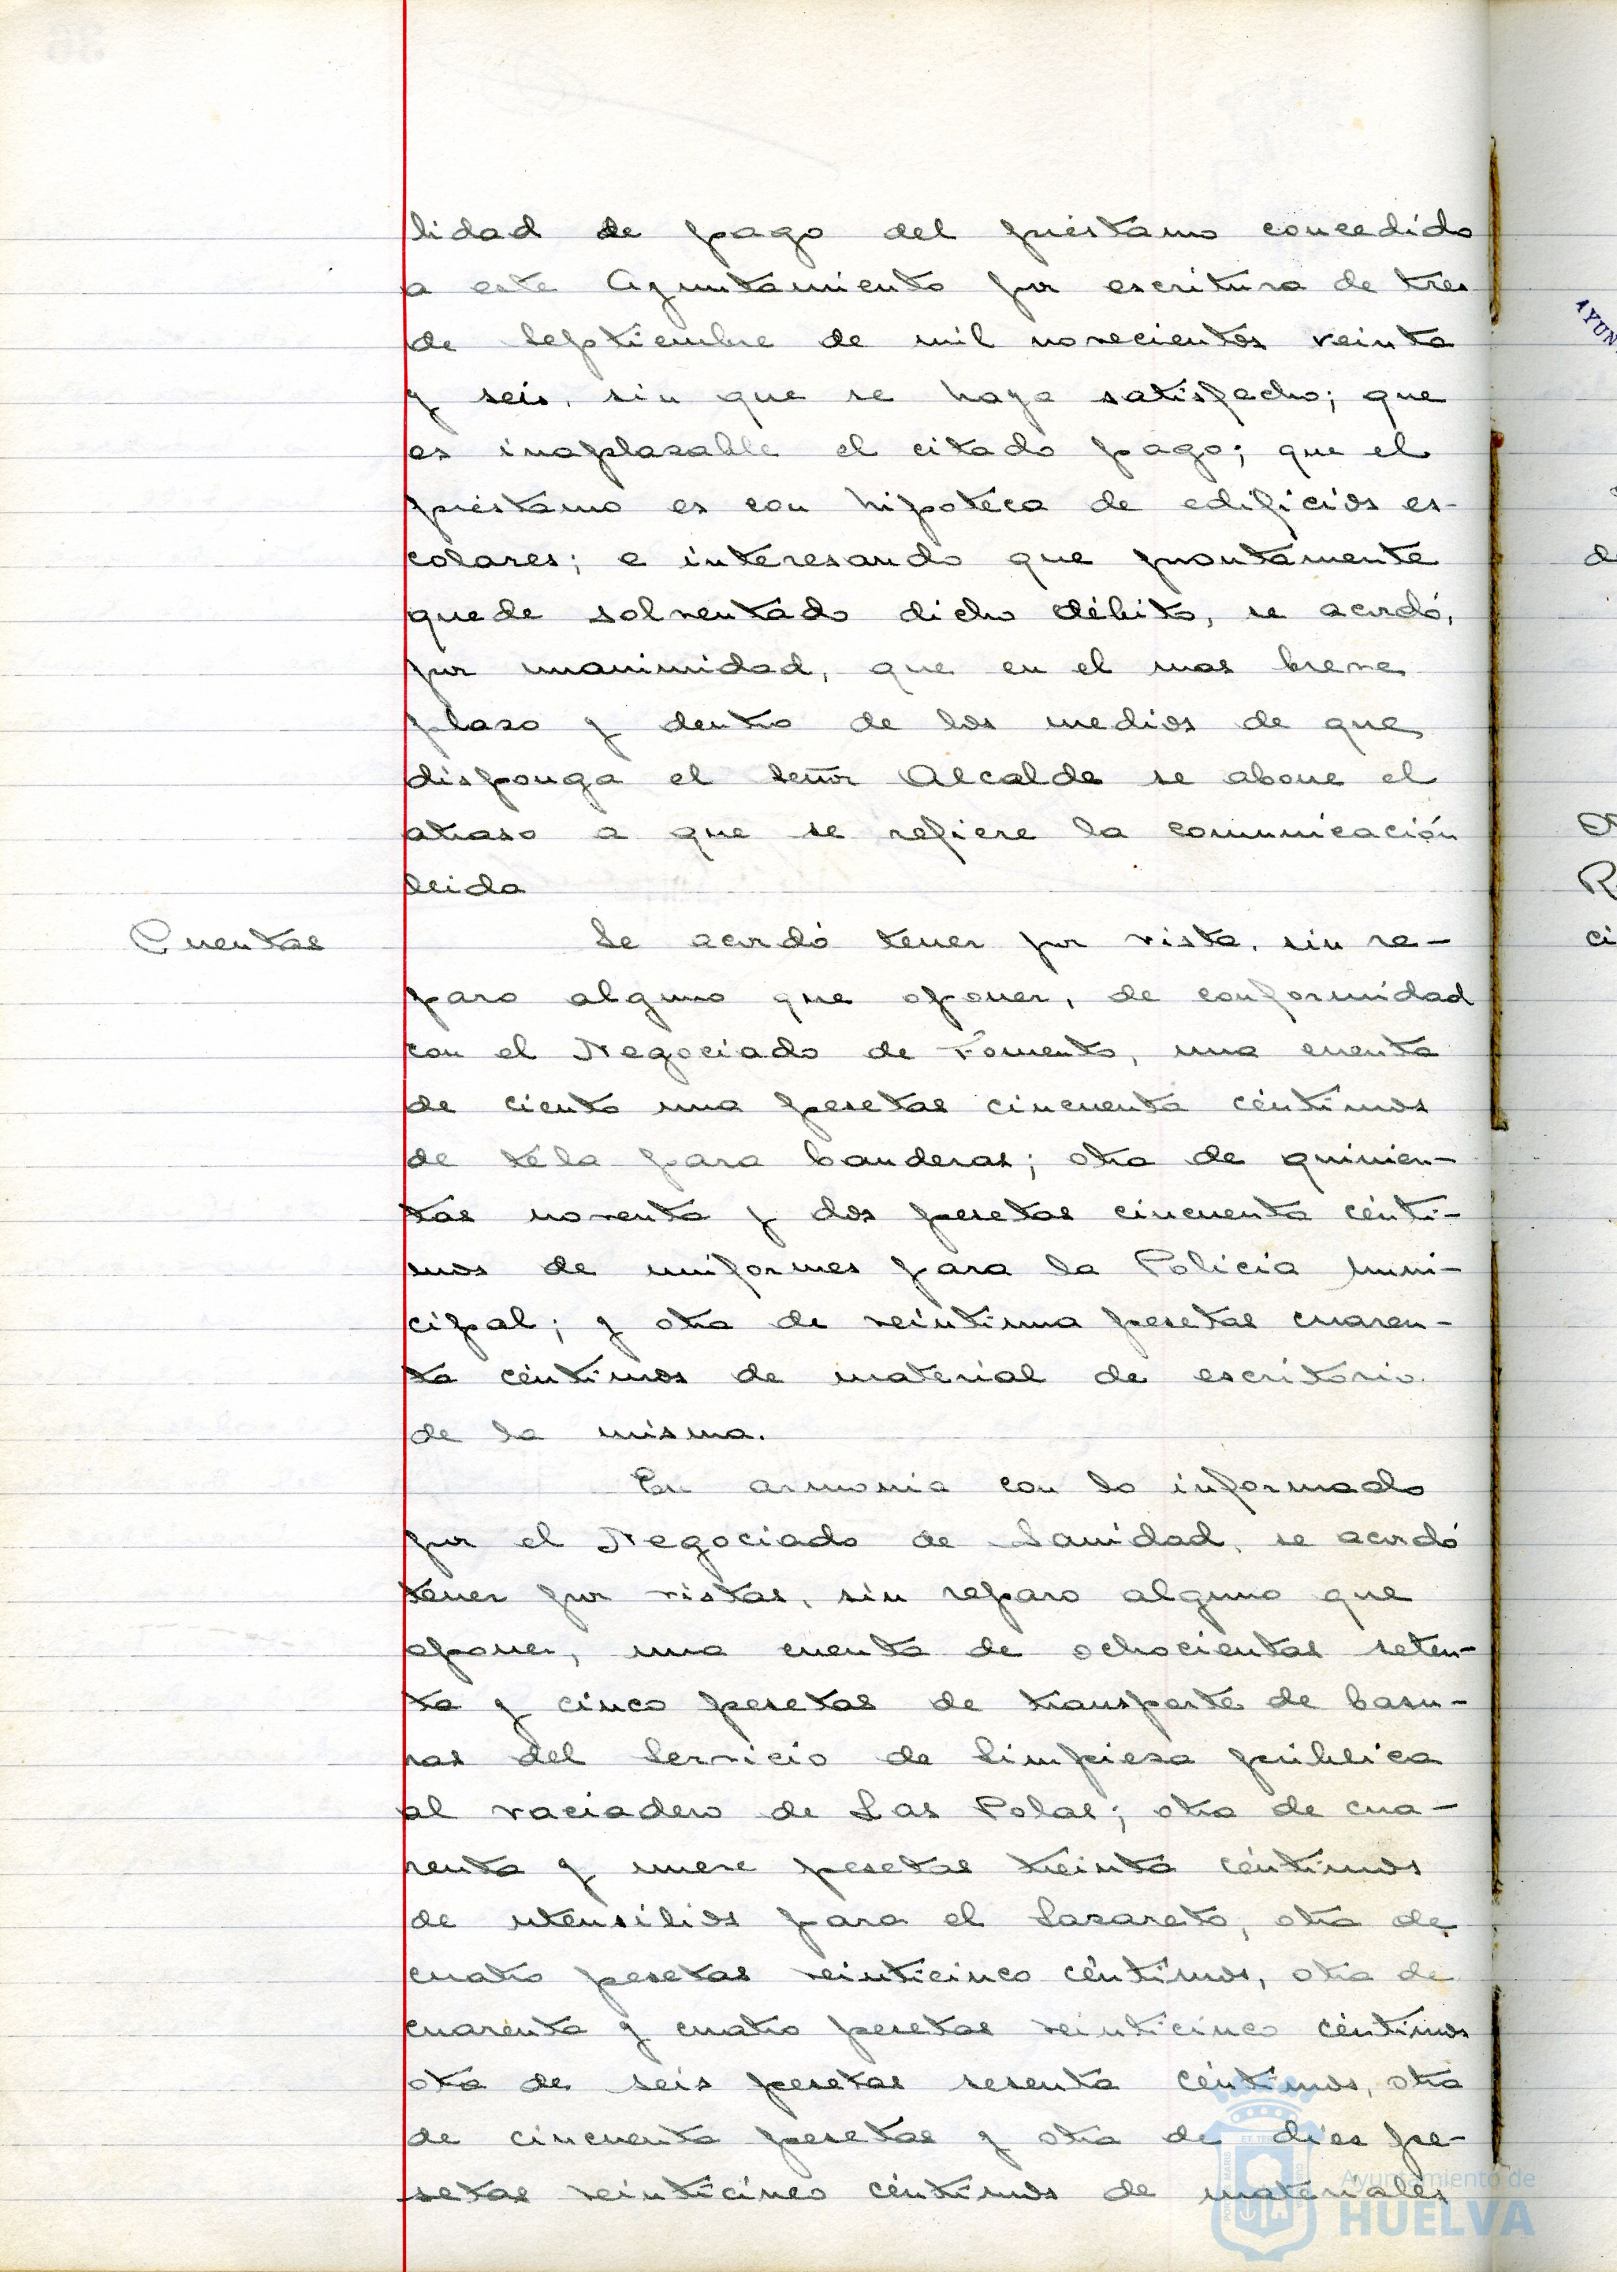 lidad de pago del préstamo concedido
a este Ayuntamiento por escritura de tres
de Septiembre de mil novecientos veinte
y seis, sin que se haya satisfecho; que
es inaplazable el citado pago; que el
préstamo es con hipoteca de edificios es-
colares; e interesando que prontamente
quede solventado dicho débito, se acordó,
por unanimidad, que en el mas breve
plazo y dentro de los medios de que
disponga el Señor Alcalde se abone el
atraso a que se refiere la comunicación
leida
Cuentas
Se acordó tener por vista, sin re-
paro alguno que oponer, de conformidad
con el Negociado de Fomento, una cuenta
de ciento una pesetas cincuenta céntimos
de tela para banderas; otra de quinien-
tas noventa y dos pesetas cincuenta cénti-
mos de uniformes para la Policia Muni-
cipal; y otra de veintiuna pesetas cuaren-
ta céntimos de material de escritorio
de la misma.
En armonia con lo informado
por el Negociado de Sanidad, se acordó
tener por vistas, sin reparo alguno que
oponer, una cuenta de ochocientas seten-
ta y cinco pesetas de transporte de basu-
ras del Servicio de Limpieza pública
al vaciadero de Las Polas; otra de cua-
renta y nueve pesetas treinta céntimos
de utensilios para el Lazareto, otra de
cuatro pesetas veinticinco céntimos, otra de
cuarenta y cuatro pesetas veinticinco céntimos
otra de seis pesetas sesenta céntimos, otra
de cincuenta pesetas y otra de diez pe-
setas veinticinco céntimos de materiales
Ayuntamiento de
HUELVA